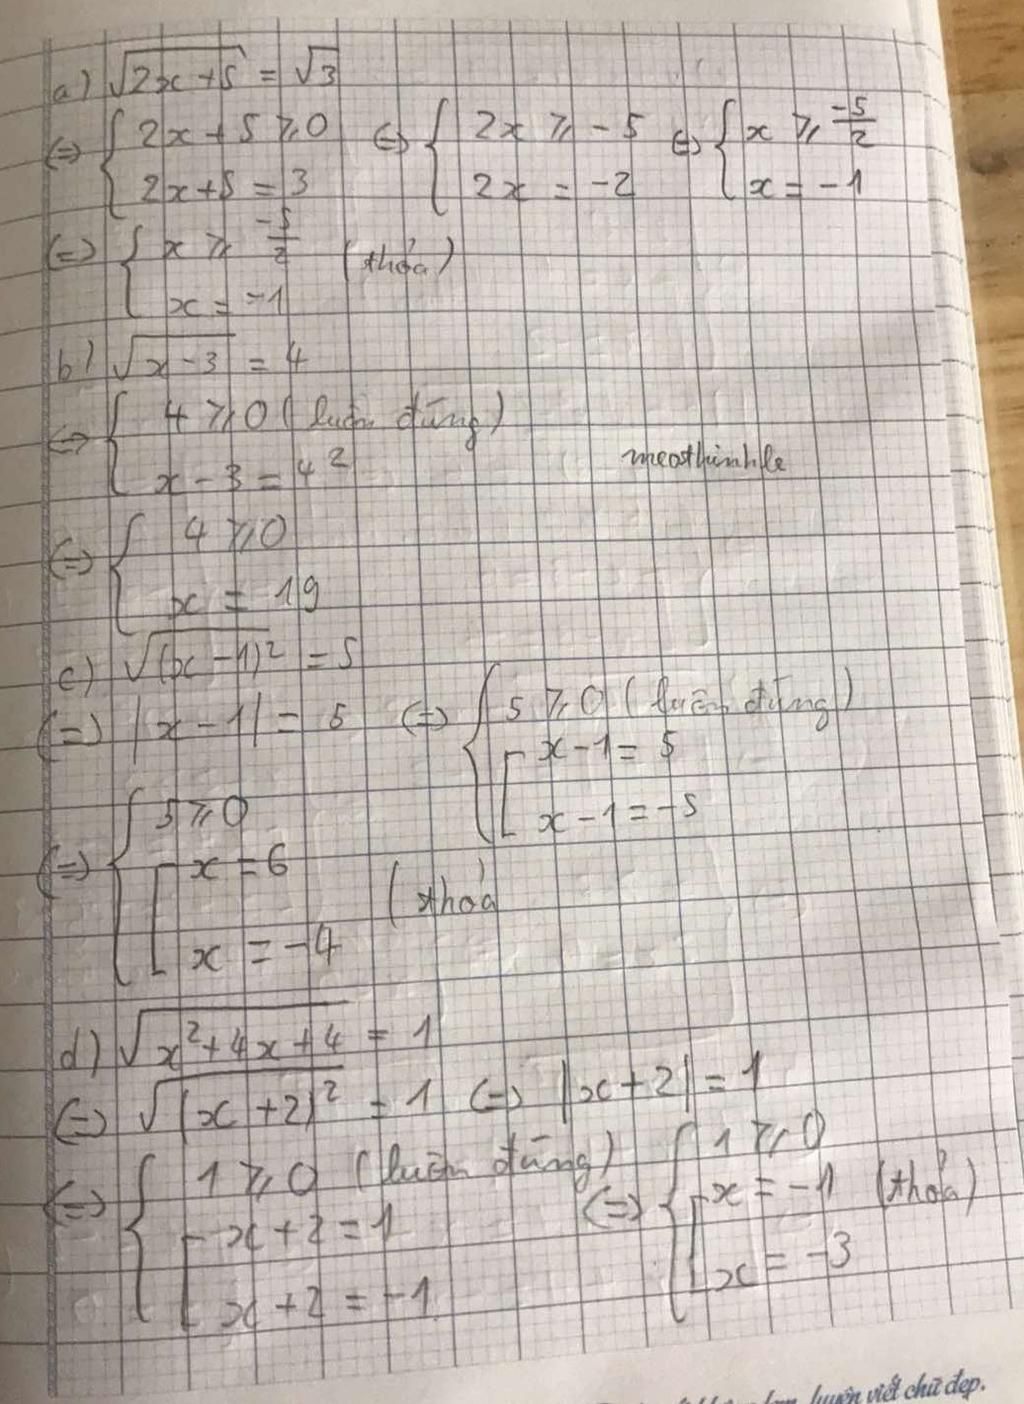 a) √(2x+5) = √3
⇔ { 2x + 5 ⩾ 0 ⇔ { 2x ⩾ -5 ⇔ { x ⩾ -5/2
2x+5 = 3 2x = -2 x = -1
⇔ { x ⩾ -5/2 (thỏa)
x = -1
b) √(x-3) = 4
⇔ { 4 ⩾ 0 (luôn đúng)
x - 3 = 4²
meothinhle
⇔ { 4 ⩾ 0
x = 19
c) √((x-1)²) = 5
⇔ |x-1| = 5 ⇔ { 5 ⩾ 0 (luôn đúng)
[ x-1 = 5
x-1 = -5
⇔ { 5 ⩾ 0
[ x = 6 (thỏa
x = -4
d) √(x²+4x+4) = 1
⇔ √((x+2)²) = 1 ⇔ |x+2| = 1
⇔ { 1 ⩾ 0 (luôn đúng) ⇔ { 1 ⩾ 0
[ x+2 = 1 [ x = -1 (thỏa)
x+2 = -1 x = -3
luyện viết chữ đẹp.